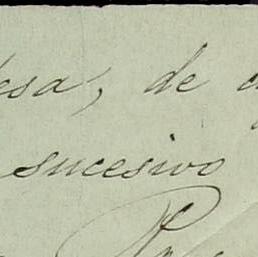 esa, de
sucesivo